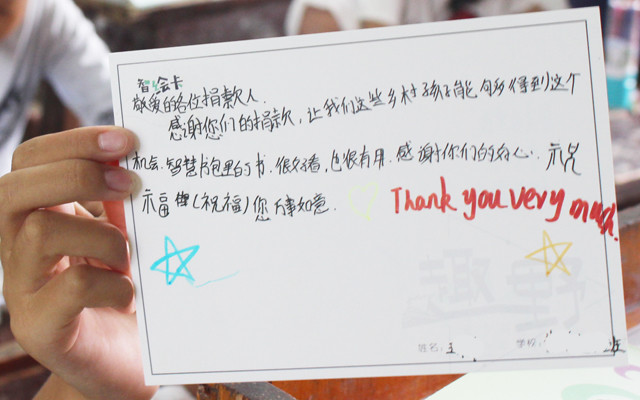 智会卡
敬爱的各位捐款人.
感谢您们的捐款,让我们这些乡村孩子能够得到这个
机会.智慧书包里的书.很好看,也很有用.感谢你们的好心.祝
福(祝福)您万事如意. Thank you very much.
趣野
姓名: 王 学校: 班